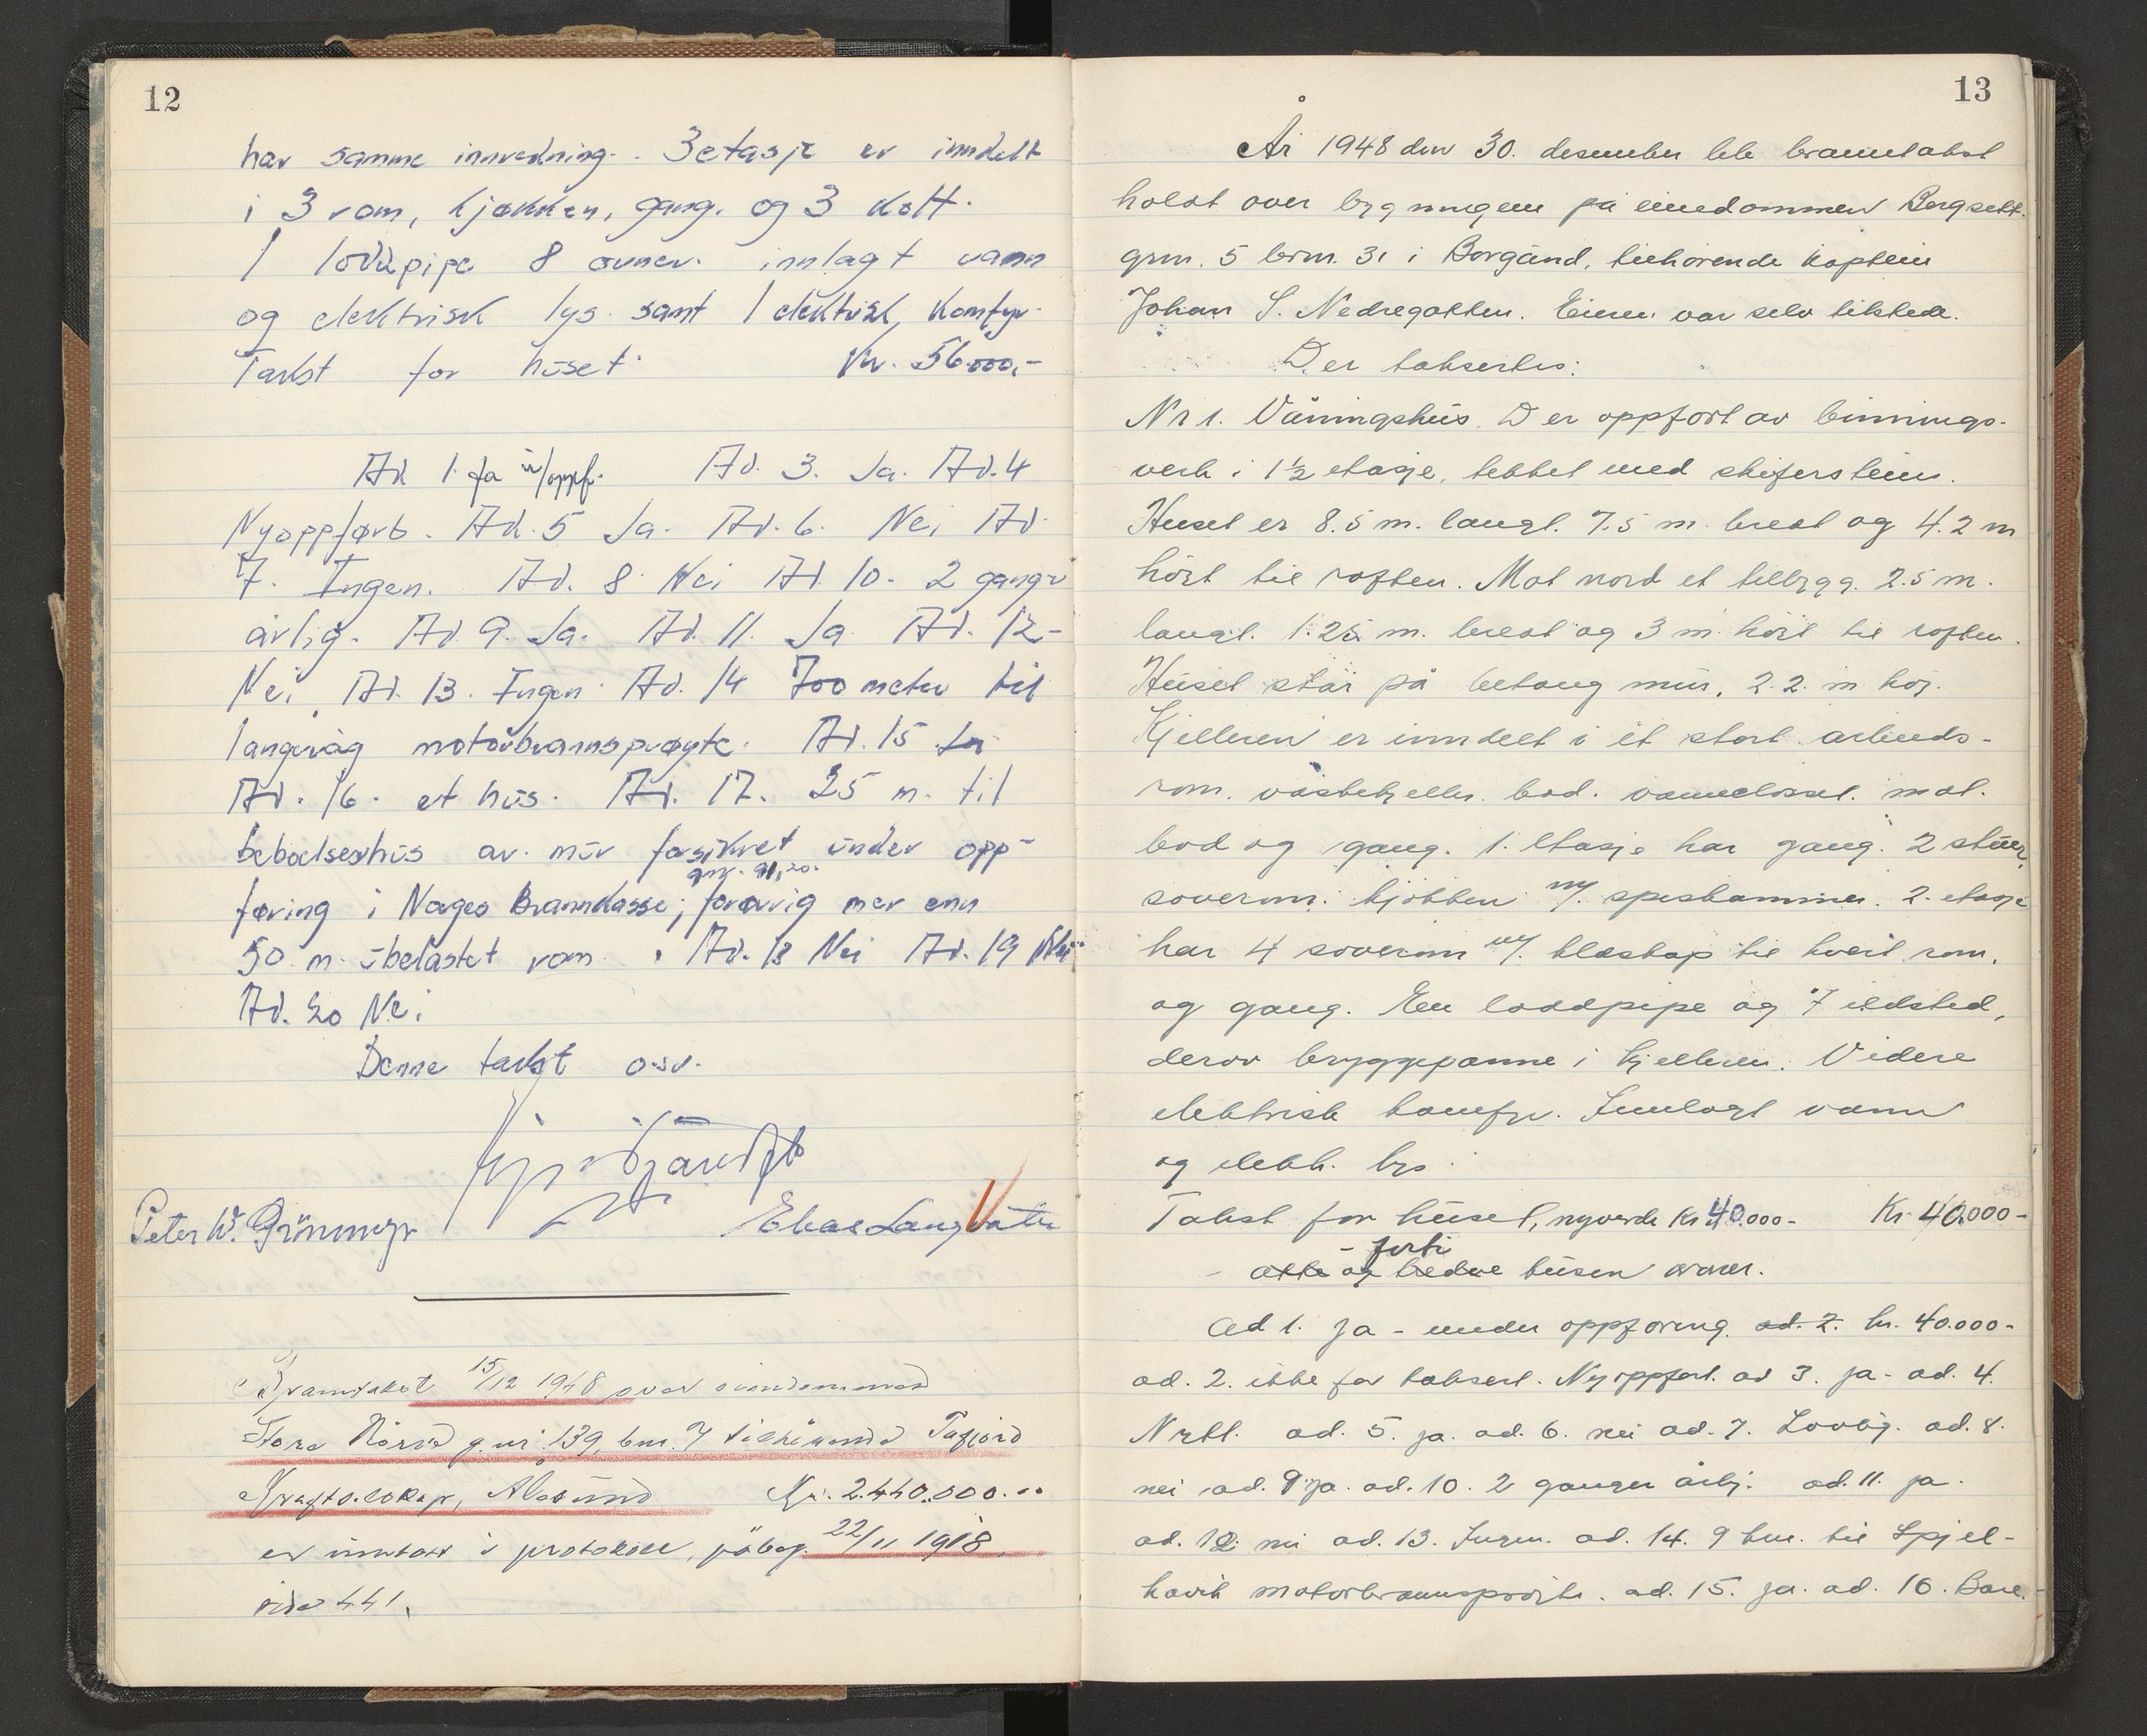 12
har samme innredning. 3 etasje er inndelt
i 3 rom, kjøkken, gang. og 3 kott.
1 loddpipe 8 ovner. innlagt vann
og elektrisk lys samt 1 elektrisk komfyr.
Takst for huset Kr. 56.000,-
Ad 1. Ja u/oppf. Ad. 3. Ja. Ad. 4
Nyoppført. Ad. 5 Ja. Ad. 6. Nei Ad
7. Ingen. Ad. 8 Nei Ad 10. 2 ganger
årlig. Ad. 9. Ja. Ad. 11. Ja Ad. 12-
Nei. Ad. 13. Ingen. Ad. 14 700 meter til
langevåg motorbrannsprøyte. Ad. 15 Ja
Ad. 16. et hus. Ad. 17. 25 m. til
beboelseshus av mur forsikret under opp-
gnr. 91,20.
føring i Norges Brannkasse; forøvrig mer enn
50 m. ubelastet rom. Ad. 18 Nei Ad. 19 Nei
Ad. 20 Nei
Denne takst osv.
Peter W. Grönmyr Elias Langvatn
Branntakst 15/12 1948 over eiendommen
Store g.nr. 139 bnr. 7 tilhörende Tafjord
Kraftselskap, Ålesund Kr. 2.440.000.00
er inntatt i protokoll, påbeg. 22/11 1918,
side 441.
13
År 1948 den 30. desember ble branntakst
holdt over bygningen på eiendommen Borgsett.
grn. 5 brn. 31 i Borgund, tilhørende kaptein
Johan S. Nedregotten. Eieren var selv tilstede.
Der taksertes:
Nr 1. Våningshus. Der oppført av binnings-
verk i 1½ etasje, tekket med skiferstein.
Huset er 8.5 m. langt. 7.5 m. bredt og 4.2 m
höit til roften. Mot nord et tilbygg. 2.5 m.
langt. 1.25 m. bredt og 3 m. höit til roften.
Huset står på betong mur, 2.2. m höi.
Kjelleren er inndelt i et stort arbeids-
rom. vaskekjeller. bod. vannclosset. mat.
bod og gang. 1. etasje har gang. 2 stuer,
soverom. kjökken m/. spiskammer. 2. etasje
har 4 soverom m/. kleskap til hvert rom.
og gang. En loddpipe og 7 ildsted,
derav bryggepanne i kjelleren. Videre
elektrisk komfyr. Innlagt vann
og elektr. lys.
Takst for huset, nyverdi Kr 40.000- Kr 40.000-
- forti
åtte og tredve tusen kroner.
Ad 1. Ja - under oppföring. ad. 2. kr. 40.000-
ad. 2. ikke för taksert. Nyoppfört. ad 3. ja- ad. 4.
Nytt. ad. 5. ja. ad. 6. nei ad. 7. Lovlig. ad. 8.
nei ad. 9 ja. ad. 10. 2 ganger årlig. ad. 11. ja.
ad. 12. nei ad. 13. Ingen. ad. 14. 9 km. til Spjel-
kavik motorbrannspröite. ad. 15. ja. ad. 16. Bare